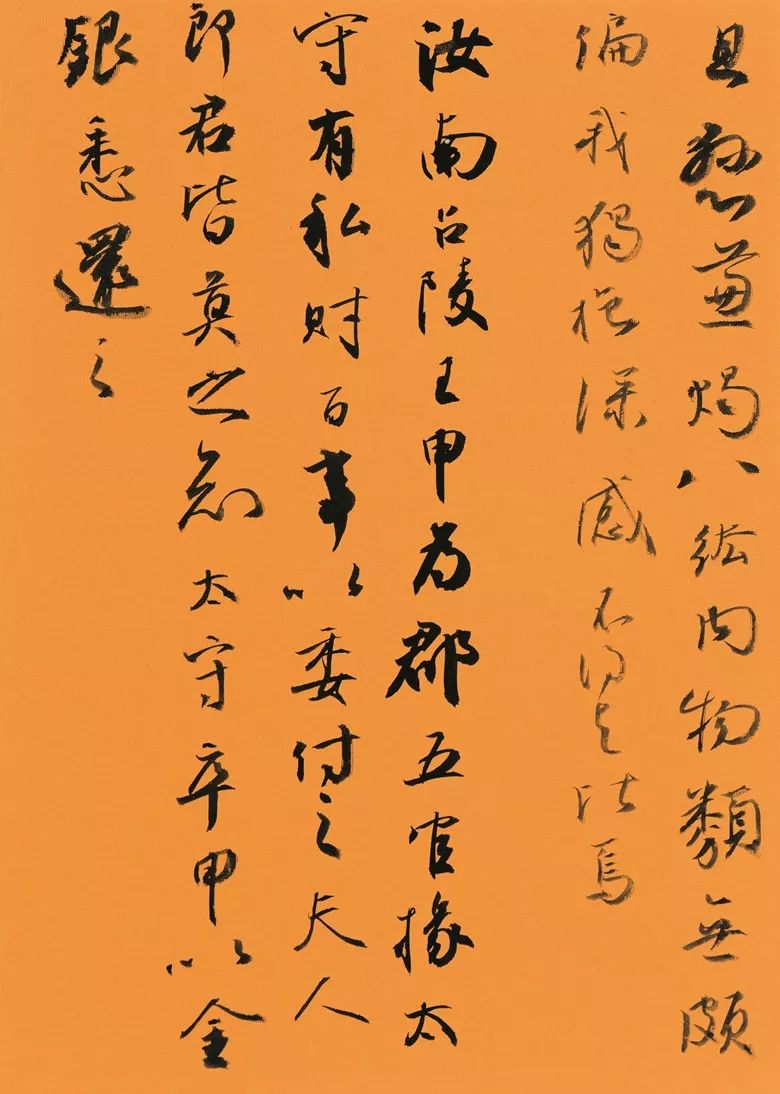 且懸兼燭八紘内物類無頗
偏我獨抱深感不得與比焉
汝南召陵王甲為郡五官掾太
守有私財百事以委付之夫人
郎君皆莫之知太守卒甲以金
銀悉還之